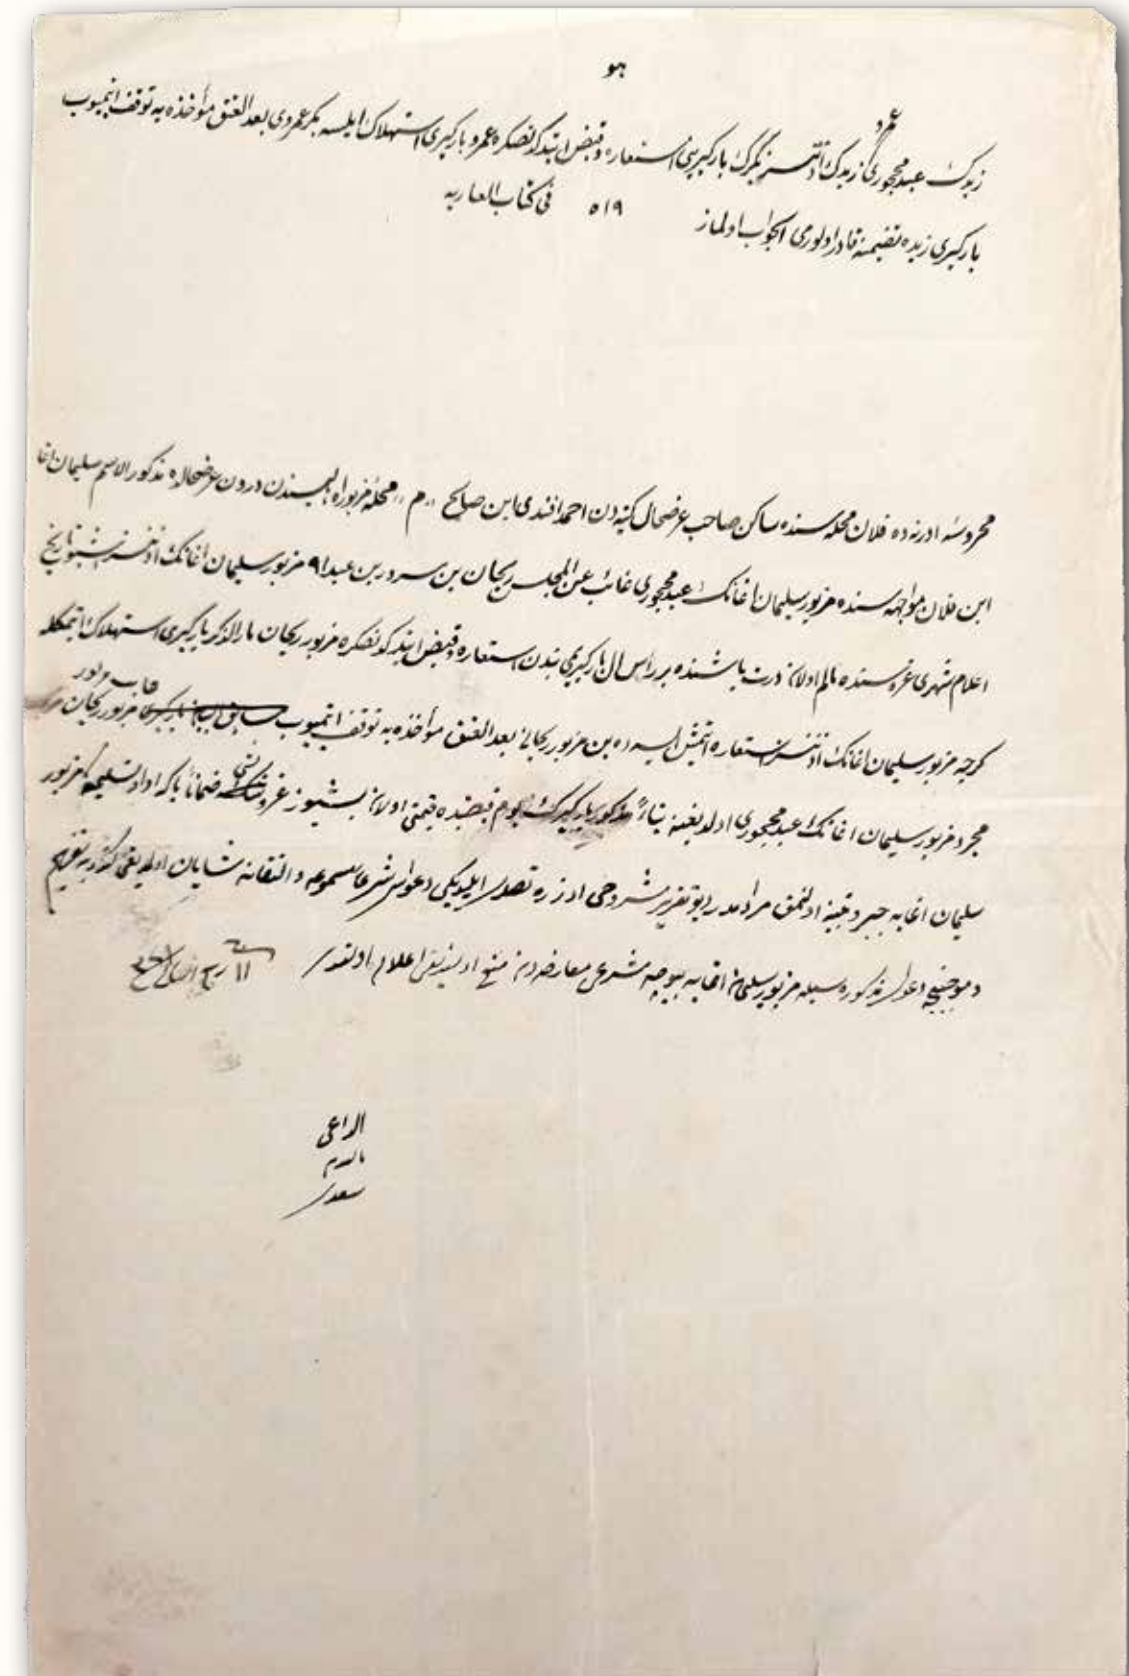 هو
عمرو
زيدك عبد محجوری زيدك اذنسز بكرك باركيرينی استعاره و قبض ايتدكدنصكره عمرو باركيری استهلاك ايلسه بكر عمروی بعد العتق مؤاخذه يه توقف ايتميوب
باركيری زيده تضمينه قادر اولورمی الجواب اولماز ٥١٩ فی كتاب العاريه
محروسۀ ادرنه ده فلان محله سنده ساكن صاحب عرضحال كتبه دن احمد افندی ابن صالح م محلۀ مزبوره اهاليسندن درون عرضحالده مذكور الاسم سليمان اغا
ابن فلان مواجهه سنده مزبور سليمان اغانك عبد محجوری غائب عن المجلس ريحان بن سرور بن عبد مزبور سليمان اغانك اذنسز اشبو تاريخ
اعلام شهری غره سنده مالم اولان درت ياشنده بر رأس ال باركيريمی بندن استعاره و قبض ايتدكدنصكره مزبور ريحان مار الذكر باركيری استهلاك ايتمكله
غائب مزبور
كرچه مزبور سليمان اغانك اذنسز استعاره ايتمش ايسه ده بن مزبور ريحانی بعد العتق مؤاخذه يه توقف ايتميوب مزبور ريحان
مجرد مزبور سليمان اغانك عبد محجوری اولديغنه بناءً مذكور باركيرك يوم قبضنده قيمتی اولان بشيوز غروش ضماناً بكا ادا و تسليمه مزبور
سليمان اغايه جبر و تنبيه اولنمق مرادمدر ديو تقرير مشروحی اوزره تصدی ايلديكی دعواسی شرعاً مسموعه و التفاته شايان اولمديغی كندويه تفهيم
و موجبنجه دعوای مذكوره سيله مزبور سليمان اغايه بيوجه شرعی معارضه دن منع اولنديغی اعلام اولندی ١١
الداعی
سعدی